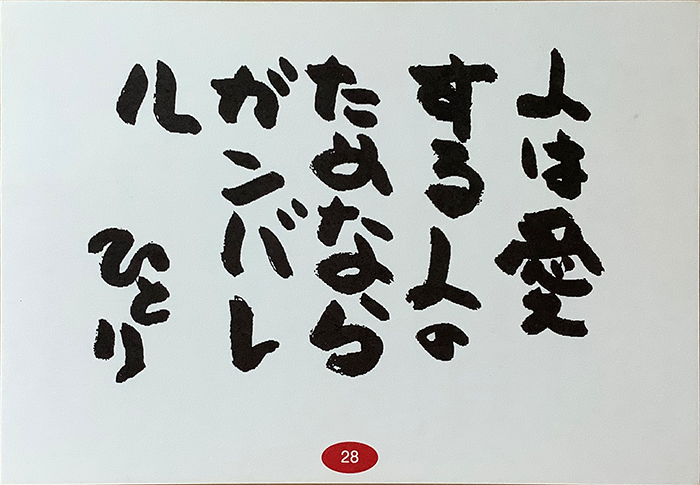 人は愛
する人の
ためなら
ガンバレ
ル
ひとり
28